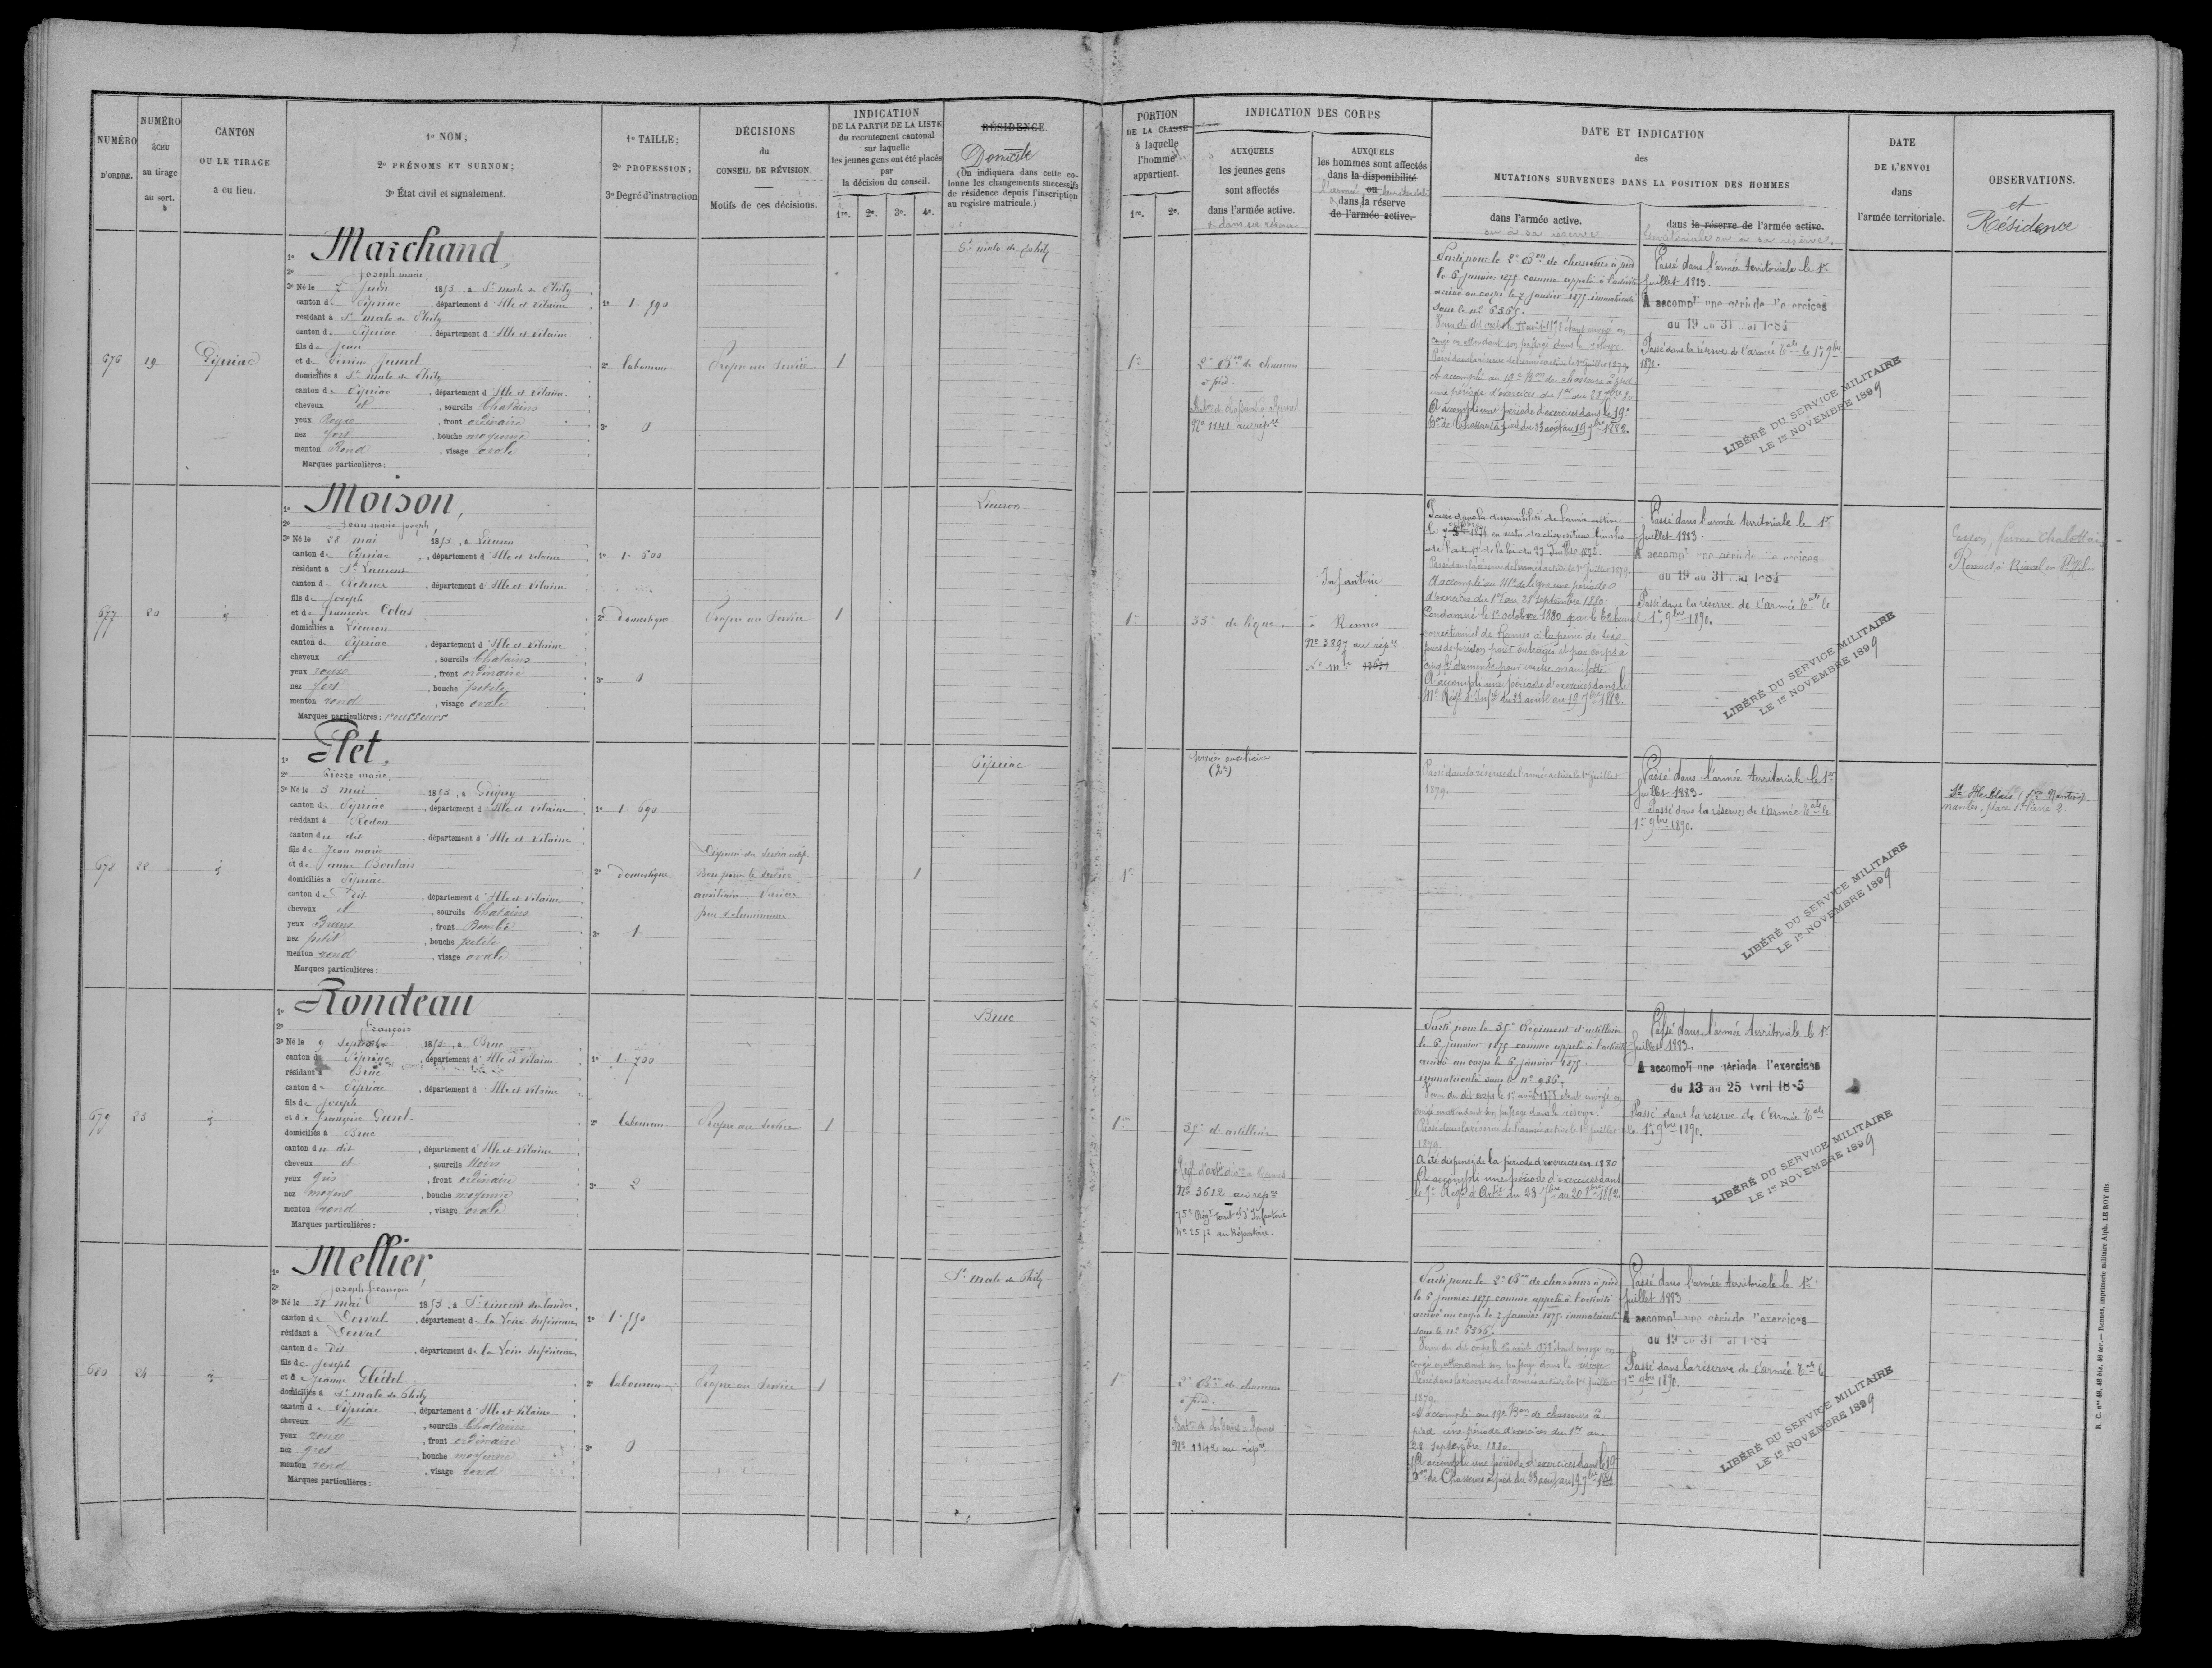 NUMÉRO
D'ORDRE.
NUMÉRO
ÉCHU
au tirage
au sort.
CANTON
OU LE TIRAGE
a eu lieu.
1º NOM;
2º PRÉNOMS ET SURNOM;
3º État civil et signalement.
1º TAILLE;
2º PROFESSION;
3º Degré d'instruction
DÉCISIONS
du
CONSEIL DE RÉVISION.
Motifs de ces décisions.
INDICATION
DE LA PARTIE DE LA LISTE
du recrutement cantonal
sur laquelle
les jeunes gens ont été placés
par
la décision du conseil.
1re. 2e. 3e. 4e.
RÉSIDENCE
Domicile
(On indiquera dans cette co-
lonne les changements successifs
de résidence depuis l'inscription
au registre matricule.)
676
19
Pipriac
1º Marchand,
2º Joseph marie
3º Né le 7 Juin 1853, à St malo de Phily
canton de Pipriac, département d'Ille et Vilaine
résidant à St malo de Phily
canton de Pipriac, département d'Ille et Vilaine
fils de Jean
et de Perrine Jumel
domiciliés à St malo de Phily
canton de Pipriac, département d'Ille et Vilaine
cheveux et, sourcils Chatains
yeux Roux, front ordinaire
nez fort, bouche moyenne
menton Rond, visage ovale
Marques particulières:
1º 1.590
2º laboureur
3º 0
Propre au service
1
St malo de Phily
677
20
id
1º Moison,
2º Jean marie Joseph
3º Né le 28 mai 1853, à Lieuron
canton de Pipriac, département d'Ille et Vilaine
résidant à St Laurent
canton de Rennes, département d'Ille et Vilaine
fils de Joseph
et de Françoise Colas
domiciliés à Lieuron
canton de Pipriac, département d'Ille et Vilaine
cheveux et, sourcils Chatains
yeux roux, front ordinaire
nez fort, bouche petite
menton rond, visage ovale
Marques particulières: rousseurs
1º 1.600
2º domestique
3º 0
Propre au Service
1
Lieuron
678
22
id
1º Plet,
2º Pierre marie
3º Né le 3 mai 1853, à Guipry
canton de Pipriac, département d'Ille et Vilaine
résidant à Redon
canton du dit, département d'Ille et Vilaine
fils de Jean marie
et de Jeanne Boulais
domiciliés à Pipriac
canton de Dit, département d'Ille et Vilaine
cheveux et, sourcils Chatains
yeux Bruns, front Bombé
nez petit, bouche petite
menton rond, visage ovale
Marques particulières:
1º 1.690
2º domestique
3º 1
Dispensé du service actif.
Bon pour le service
auxiliaire. Varices
peu volumineuses
1
Pipriac
679
23
id
1º Rondeau
2º François
3º Né le 9 Septembre 1853, à Bruc
canton de Pipriac, département d'Ille et Vilaine
résidant à Bruc
canton de Pipriac, département d'Ille et Vilaine
fils de Joseph
et de Françoise Gaul
domiciliés à Bruc
canton du dit, département d'Ille et Vilaine
cheveux et, sourcils Noirs
yeux gris, front ordinaire
nez moyen, bouche moyenne
menton rond, visage ovale
Marques particulières:
1º 1.700
2º laboureur
3º 2
Propre au Service
1
Bruc
680
24
id
1º Mellier,
2º Joseph François
3º Né le 31 mai 1853, à St Vincent des landes
canton de Derval, département de la Loire Inférieure
résidant à Derval
canton de Dit, département de la Loire Inférieure
fils de Joseph
et de Jeanne Gleitel
domiciliés à St malo de Phily
canton de Pipriac, département d'Ille et Vilaine
cheveux et, sourcils Chatains
yeux roux, front ordinaire
nez gros, bouche moyenne
menton rond, visage rond
Marques particulières:
1º 1.550
2º laboureur
3º 0
Propre au Service
1
St malo de Phily
PORTION
DE LA CLASSE
à laquelle
l'homme
appartient.
1re. 2e.
INDICATION DES CORPS
AUXQUELS
les jeunes gens
sont affectés
dans l'armée active.
& dans sa réserve
AUXQUELS
les hommes sont affectés
dans la disponibilité
ou
l'armée territoriale
dans la réserve
de l'armée active.
DATE ET INDICATION
des
MUTATIONS SURVENUES DANS LA POSITION DES HOMMES
dans l'armée active.
ou à sa réserve
dans la réserve de l'armée active.
territoriale ou à sa réserve.
DATE
DE L'ENVOI
dans
l'armée territoriale.
OBSERVATIONS.
et
Résidence
1re
2e Bon de chasseurs
à pied.
Batn de chasseurs à Rennes
Nº 1141 au répre
Parti pour le 2e Bon de chasseurs à pied
le 6 janvier 1875 comme appelé à l'activité
arrivé au corps le 7 Janvier 1875, immatriculé
sous le nº 6365.
congé en attendant son passage dans la réserve.
Passé dans la réserve de l'armée active le 1er juillet 1879
A accompli au 19e Bon de chasseurs à pied
une période d'exercices du 1er au 28 7bre 80
A accompli une période d'exercices dans le 19e
Bon de Chasseurs à pied du 23 août au 19 7bre 1882.
Passé dans l'armée territoriale le 1er
Juillet 1883.
A accompli une période d'exercices
du 19 au 31 mai 1884
Passé dans la réserve de l'armée Tale le 1er 9bre
1890.
LIBÉRÉ DU SERVICE MILITAIRE
LE 1er NOVEMBRE 1899
1re
55e de ligne.
Infanterie
à Rennes
Nº 3897 au répre
Nº mle 13631
Passé dans la disponibilité de l'armée active
le octobre 1874, en vertu des dispositions finales
de l'art. 17 de la loi du 27 Juillet 1872.
Passé dans la réserve de l'armée active le 1er juillet 1879
A accompli au 41e de ligne une période
d'exercices du 1er au 28 septembre 1880.
Condamné le 1er octobre 1880 par le tribunal
correctionnel de Rennes à la peine de six
jours de prison pour outrages et par corps à
d'amende pour ivresse manifeste
A accompli une période d'exercices dans le
41e Régt d'Inft du 23 août au 19 7bre 1882.
Passé dans l'armée territoriale le 1er
Juillet 1883.
A accompli une période d'exercices
du 19 au 31 mai 1884
Passé dans la réserve de l'armée Tale le
1er 9bre 1890.
LIBÉRÉ DU SERVICE MILITAIRE
LE 1er NOVEMBRE 1899
1re
Services auxiliaire
(2e)
Passé dans la réserve de l'armée active le 1er juillet
1879.
Passé dans l'armée territoriale le 1er
Juillet 1883.
Passé dans la réserve de l'armée Tale le
1er 9bre 1890.
LIBÉRÉ DU SERVICE MILITAIRE
LE 1er NOVEMBRE 1899
St Herblain
nantes, place St Pierre 2
1re
35e d'artillerie
Nº 3612 au répre
75e Régt territal d'Infanterie
Nº 2572 au Répertoire.
Parti pour le 35e Régiment d'artillerie
le 6 janvier 1875 comme appelé à l'activité
arrivé au corps le 6 janvier 1875
immatriculé sous le nº 936.
congé en attendant son passage dans la réserve.
Passé dans la réserve de l'armée active le 1er juillet
1879.
A été dispensé de la période d'exercices en 1880
A accompli une période d'exercices dans
le 7e Régt d'Artie du 23 7bre au 20 8bre 1882
Passé dans l'armée territoriale le 1er
Juillet 1883.
A accompli une période d'exercices
du 13 au 25 Avril 1885
Passé dans la réserve de l'armée Tale
le 1er 9bre 1890.
LIBÉRÉ DU SERVICE MILITAIRE
LE 1er NOVEMBRE 1899
1re
2e Bon de chasseurs
à pied.
Batn de chasseurs à Rennes
Nº 1142 au répre
Parti pour le 2e Bon de chasseurs à pied
le 6 janvier 1875 comme appelé à l'activité
arrivé au corps le 7 Janvier 1875, immatriculé
sous le nº 6366.
congé en attendant son passage dans la réserve
Passé dans la réserve de l'armée active le 1er juillet
1879.
A accompli au 19e Bon de chasseurs à
pied une période d'exercices du 1er au
28 septembre 1880.
A accompli une période d'exercices dans le 19
Bon de Chasseurs à pied du 23 août au 19 7bre 1882
Passé dans l'armée territoriale le 1er
Juillet 1883
A accompli une période d'exercices
du 19 au 31 mai 1884
Passé dans la réserve de l'armée Tale le
1er 9bre 1890.
LIBÉRÉ DU SERVICE MILITAIRE
LE 1er NOVEMBRE 1899
Rennes, imprimerie militaire Alph. LE ROY fils